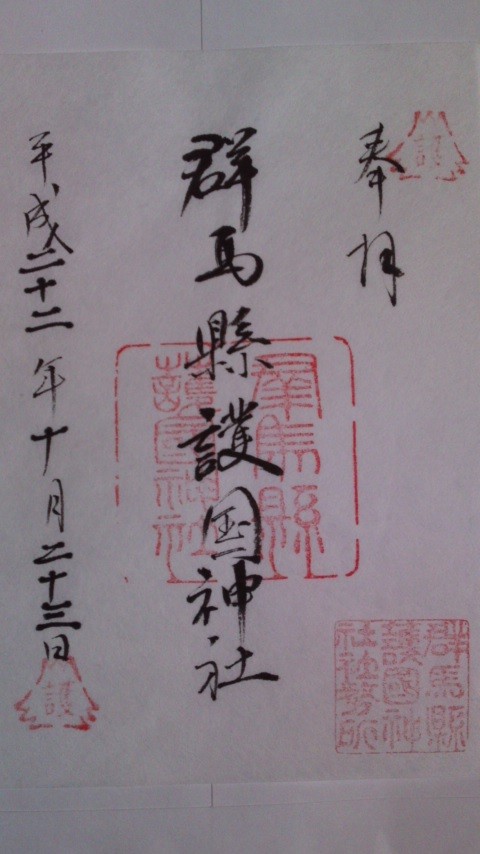 奉拝
護
群馬縣護国神社
群馬縣
護國神社
平成二十二年十月二十三日
護
群馬縣
護國神
社社務所